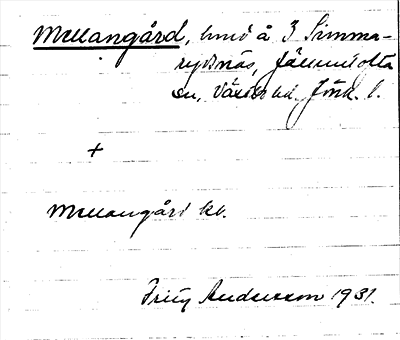 Mellangård, hmd å 3 Simma-
rydsnäs, Jälluntofta
sn, Västbo hd. Jönk. l.
+
Mellangård kv.
Frity Andersson 1931.